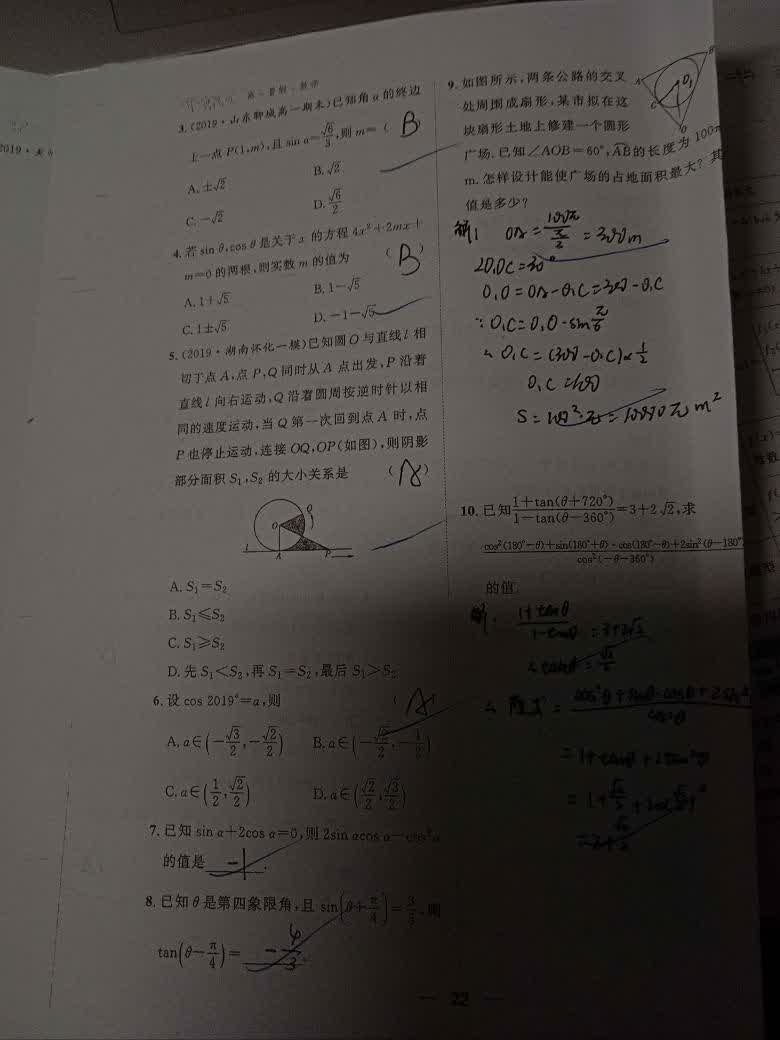 高一暑假·数学
2019·
3.(2019·山东聊城高一期末)已知角α的终边
上一点P(1,m),且sin α=√6/3,则m=( B )
A.±√2 B.√2
C.-√2 D.√6/2
4.若sin θ,cos θ是关于x的方程4x²+2mx+
m=0的两根,则实数m的值为 ( B )
A.1+√5 B.1-√5
C.1±√5 D.-1-√5
5.(2019·湖南怀化一模)已知圆O与直线l相
切于点A,点P,Q同时从A点出发,P沿着
直线l向右运动,Q沿着圆周按逆时针以相
同的速度运动,当Q第一次回到点A时,点
P也停止运动,连接OQ,OP(如图),则阴影
部分面积S₁,S₂的大小关系是 ( A )
O Q
l A P
A.S₁=S₂
B.S₁≤S₂
C.S₁≥S₂
D.先S₁<S₂,再S₁=S₂,最后S₁>S₂
6.设cos 2019°=a,则 ( A )
A.a∈(-√3/2,-√2/2) B.a∈(-√2/2,-1/2)
C.a∈(1/2,√2/2) D.a∈(√2/2,√3/2)
7.已知sin α+2cos α=0,则2sin αcos α-cos²α
的值是 -1 .
8.已知θ是第四象限角,且sin(θ+π/4)=3/5,则
tan(θ-π/4)= -4/3 .
9.如图所示,两条公路的交叉
处周围成扇形,某市拟在这
块扇形土地上修建一个圆形
广场.已知∠AOB=60°,AB的长度为100π
m.怎样设计能使广场的占地面积最大?其
值是多少?
A B
C O₁
O
解: OA= =300m
O₁O=OA-O₁C=300-O₁C
∵O₁C=O₁O·sin π/6
∴O₁C=(300-O₁C)×1/2
O₁C=100
S=100²·π=10000π m²
10.已知(1+tan(θ+720°))/(1-tan(θ-360°))=3+2√2,求
(cos²(180°-θ)+sin(180°+θ)·cos(180°-θ)+2sin²(θ-180°
cos²(-θ-360°)
的值.
解. (1+tanθ)/(1-tanθ)=3+2√2
∴tanθ=√2/2
=1+tanθ+2tan²θ
— 22 —